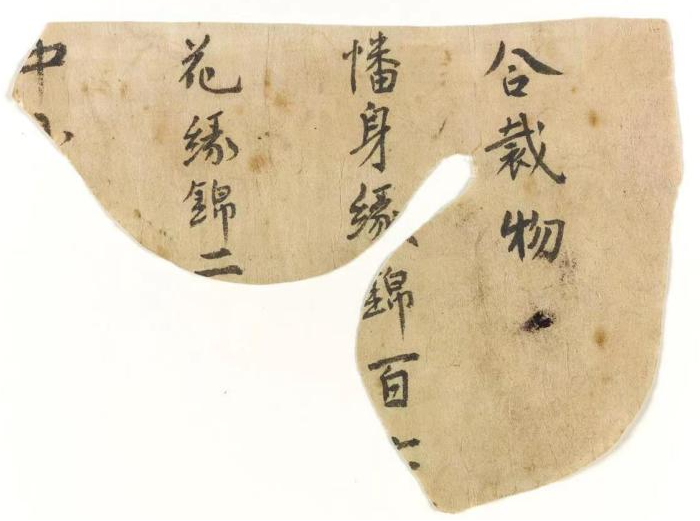 合裁物
幡身緣錦百六
花緣錦二
中